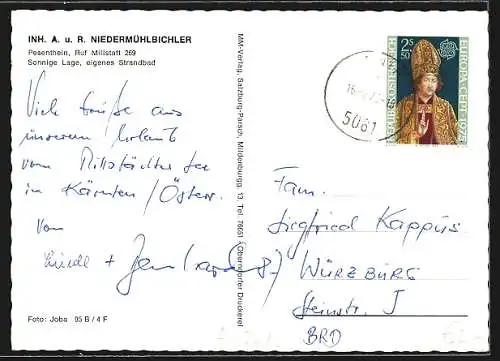 INH. A. u. R. NIEDERMÜHLBICHLER
Pesenthein, Ruf Millstatt 269
Sonnige Lage, eigenes Strandbad
Viele Grüße aus
unserem Urlaub
vom Millstätter See
in Kärnten / Österr.
von
Foto: Joba 95 B / 4 F
MM-Verlag, Salzburg-Parsch, Tel. 76651 Oberndorfer Druckerei
2 S
50
REPUBLIK ÖSTERREICH
EUROPA CEPT 1975
5081
Fam.
Siegfried Kappus
WÜRZBURG
Steinstr.
BRD